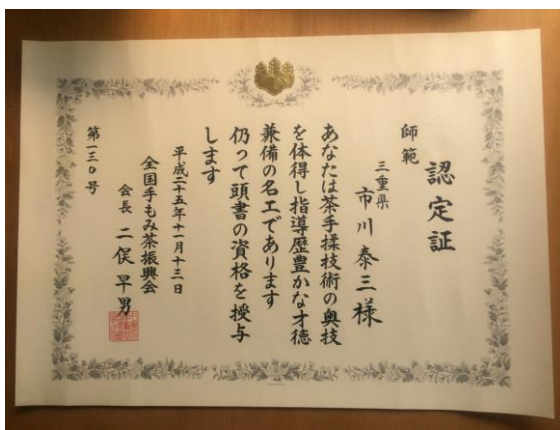 認定証
師範
三重県
市川泰三様
あなたは茶手揉技術の奥技
を体得し指導歴豊かな才徳
兼備の名工であります
仍って頭書の資格を授与
します
平成二十五年十一月十三日
全国手もみ茶振興会
会長 二俣早男
第一三〇号